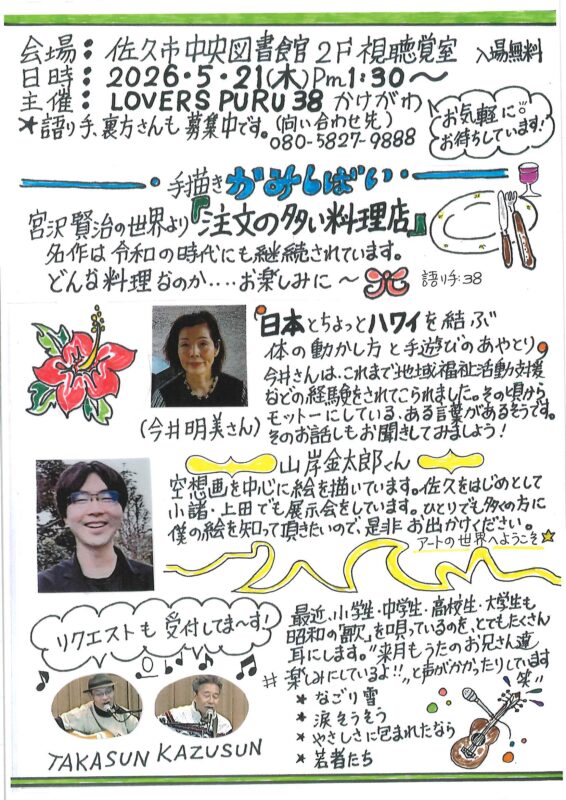 会場：佐久市中央図書館 2F 視聴覚室 入場無料
日時：2026・5・21(木)Pm1:30〜
主催：LOVERS PURU 38 かけがわ
★語り手、裏方さんも募集中です。(問い合わせ先)
080-5827-9888
お気軽に。
お待ちしています!
・手描きかみしばい・
宮沢賢治の世界より『注文の多い料理店』
名作は令和の時代にも継続されています。
どんな料理なのか‥‥お楽しみに〜
語り手:38
"日本とちょっとハワイを結ぶ
体の動かし方と手遊びのあやとり"
今井さんは、これまで地域福祉活動支援
などの経験をされてこられました。その頃から
モットーにしている、ある言葉があるそうです。
そのお話しもお聞きしてみましょう!
(今井明美さん)
山岸金太郎くん
空想画を中心に絵を描いています。佐久をはじめとして
小諸・上田でも展示会をしています。ひとりでも多くの方に
僕の絵を知って頂きたいので、是非お出かけください。
アートの世界へようこそ★
リクエストも受付してま〜す!
最近、小学生・中学生・高校生・大学生も
昭和の「歌」を唄っているのを、とてもたくさん
耳にします。"来月もうたのお兄さん達
楽しみにしているよ!!"と声がかかったりしています
笑
★ なごり雪
★ 涙そうそう
★ やさしさに包まれたなら
★ 若者たち
TAKASUN KAZUSUN